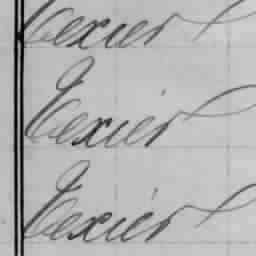 Texier
Texier
Texier